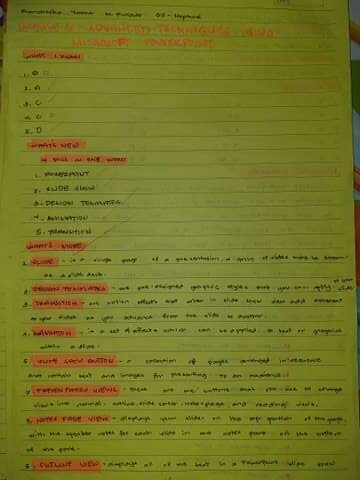 MODULE 6: ADVANCED TECHNIQUES USING
MICROSOFT POWERPOINT
WHAT I KNOW
2. A
3. C
4. C
5. D
WHAT'S NEW
IN ONE WORD
1. POWERPOINT
2. SLIDE SHOW
3. DESIGN TEMPLATES
4. ANIMATION
5. TRANSITION
WHAT'S MORE
1. SLIDE - is a single page of a presentation, a group of slides may be known
as a slide deck.
2. DESIGN TEMPLATES - are pre-designed graphic styles that you can apply
3. TRANSITION - are motion effects that when in slide show view add movement
to your slides as you advance from one slide to another.
4. ANIMATION - is a set of effects which can be applied to text or graphics
within a slide.
5. SLIDE BUTTON - a collection of pages arranged in sequence
that contain text and images for presenting to an audience
6. PRESENTATION VIEWS - these are buttons that you use to change
views into normal, outline, slide sorter, notes page and reading views.
7. NOTES PAGE VIEW - displays your slides on the top portion of the page,
with the speaker notes for each slide in the notes pane at the bottom
of the page.
8. OUTLINE VIEW - displays all of the text in a PowerPoint slide show